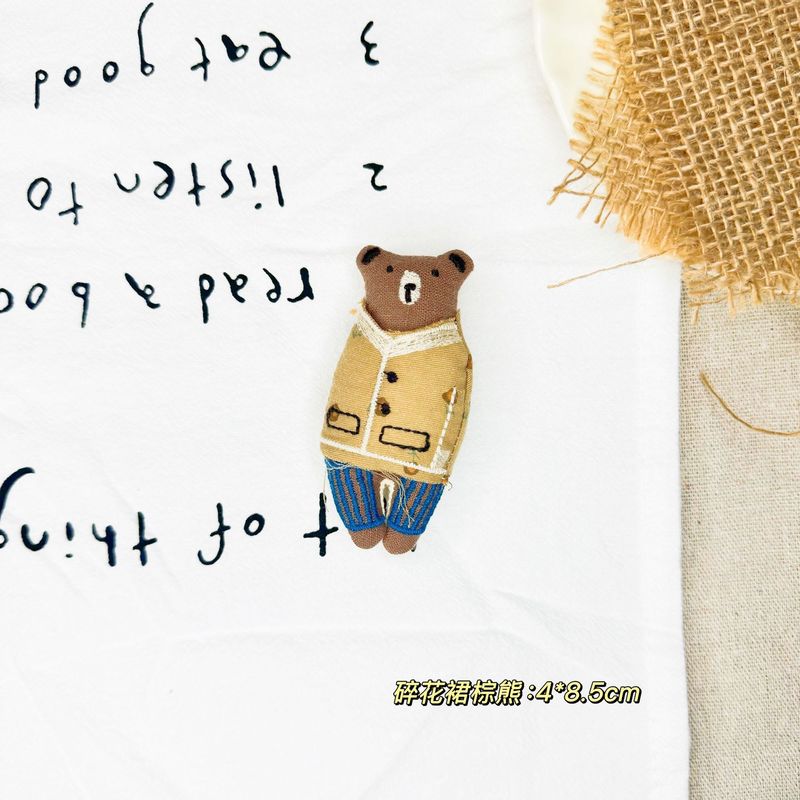 t of thing
read a boo
2 listen to
3 eat good
碎花裙棕熊 :4*8.5cm